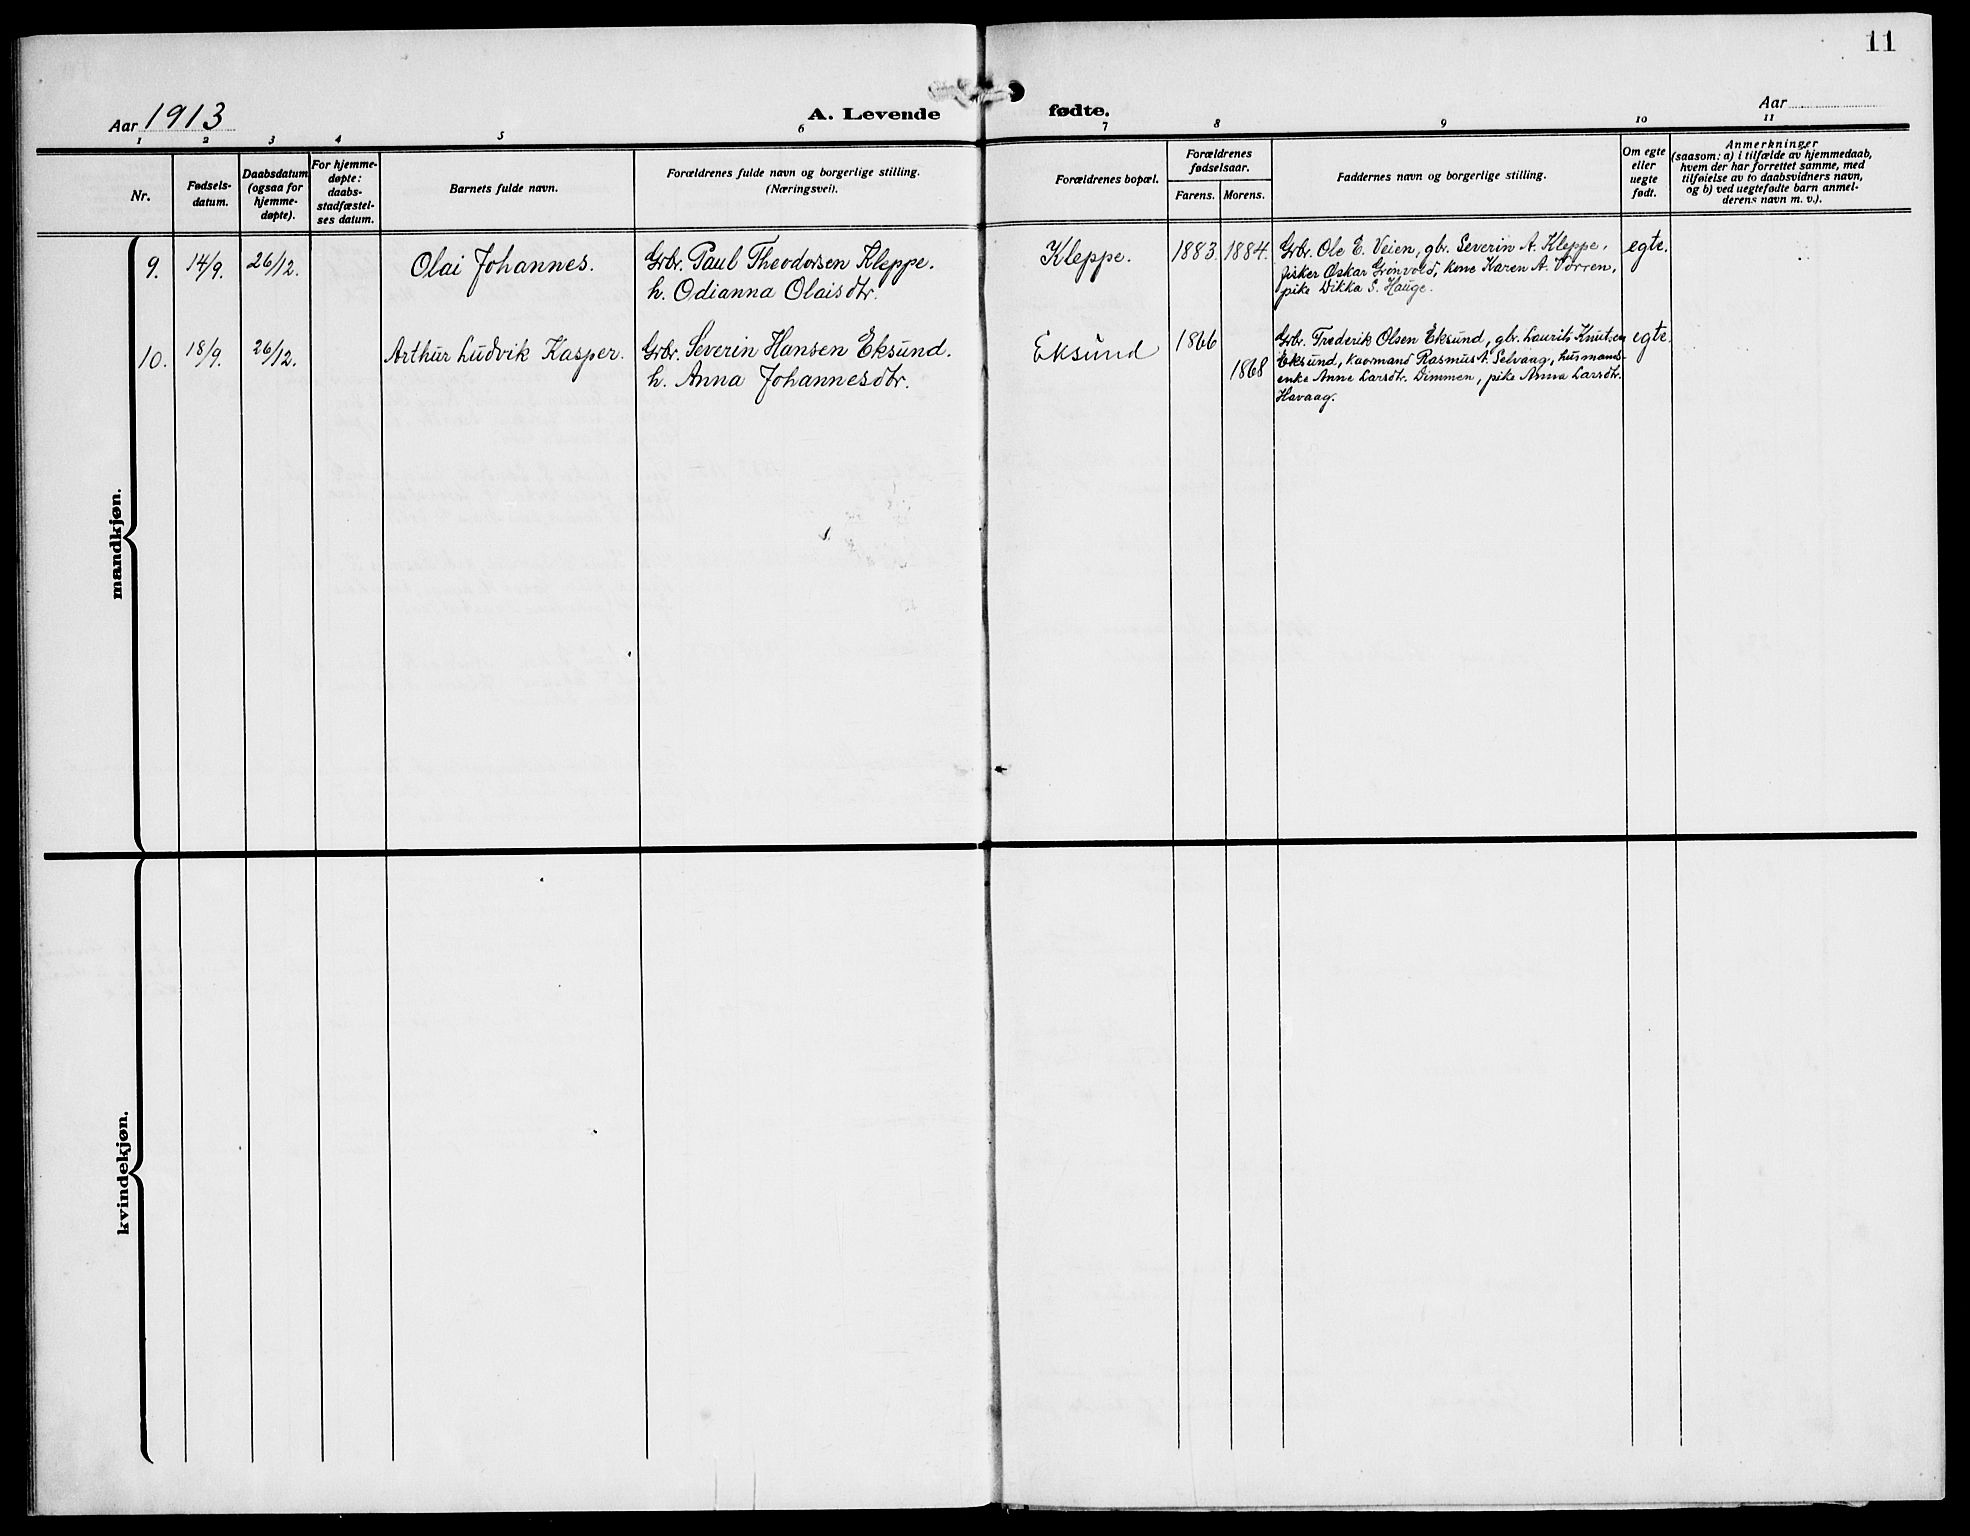 11
Aar 1913
A. Levende fødte.
Aar
1 2 3 4 5 6 7 8 9 10 11
Nr.
Fødsels-
datum.
Daabsdatum
(ogsaa for
hjemme-
døpte).
For hjemme-
døpte:
daabs-
stadfæstel-
ses datum.
Barnets fulde navn.
Forældrenes fulde navn og borgerlige stilling.
(Næringsvei).
Forældrenes bopæl.
Forældrenes
fødselsaar.
Farens. Morens.
Faddernes navn og borgerlige stilling.
Om egte
eller
uegte
født.
Anmerkninger
(saasom: a) i tilfælde av hjemmedaab,
hvem der har forrettet samme, med
tilføielse av to daabsvidners navn,
og b) ved uegtefødte barn anmel-
derens navn m. v.).
mandkjøn.
9. 14/9. 26/12. Olai Johannes.
Grbr. Paul Theodorsen Kleppe.
h. Odianna Olaisdtr.
Kleppe. 1883. 1884.
Grbr. Ole E. Veien, gbr. Severin A. Kleppe,
fisker Oskar Grønvold, kone Karen A. Vorren,
pike Dikka S. Hauge.
egte.
10. 18/9. 26/12. Arthur Ludvik Kasper.
Grbr. Severin Hansen Eksund.
h. Anna Johannesdtr.
Eksund 1866
1868
Grbr. Frederik Olsen Eksund, gbr. Laurits Knutsen
Eksund, kaarmand Rasmus A. Selvaag, husmands-
enke Anne Larsdtr. Dimmen, pike Anna Larsdtr.
Havaag.
egte.
kvindekjøn.